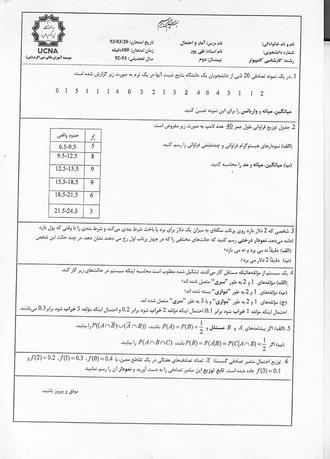 بسم الله الرحمن الرحیم
نام و نام خانوادگی:
شماره دانشجویی:
رشته: کارشناسی کامپیوتر
نام درس: آمار و احتمال
نام استاد: تقی پور
نیمسال: دوم
تاریخ امتحان: 93/03/20
زمان امتحان: 100دقیقه
سال تحصیلی: 92-93
UCNA
موسسه آموزش عالی نبی اکرم(ص)
1. در یک نمونه تصادفی 20 تایی از دانشجویان یک دانشگاه نتایج غیبت آنها در یک ترم به صورت زیر گزارش شده است:
0 1 5 1 1 1 4 0 3 2 1 3 2 4 0 4 3 1 1 2
میانگین، میانه و واریانس را برای این نمونه تعیین کنید.
2. جدول توزیع فراوانی طول عمر 40 عدد لامپ به صورت زیر مفروض است:
(الف) نمودارهای هیستوگرام فراوانی و چندضلعی فراوانی را رسم کنید.
(ب) میانگین، میانه و مد را محاسبه کنید.
حدود واقعی fᵢ
6.5-9.5 5
9.5-12.5 8
12.5-15.5 9
15.5-18.5 9
18.5-21.5 6
21.5-24.5 3
3. شخصی که 2 دلار دارد روی پرتاب سکه‌ای به میزان یک دلار برای برد یا باخت شرط بندی می‌کند و شرط بندی را تا وقتی که پول دارد
ادامه می‌دهد. نمودار درختی رسم کنید که حالت‌های مختلفی را که در چهار پرتاب اول رخ می دهند نشان دهد. در چند حالت این شخص
(الف) دقیقاً نه می برد و نه می بازد؟
(ب) دقیقاً 2 دلار می برد؟
4. یک سیستم از مؤلفه‌هایی‌که مستقل کار می‌کنند تشکیل شده مطلوب است محاسبه اینکه سیستم در حالت‌های زیر کار کند.
(الف) مؤلفه‌های 1 و 2 به طور "سری" متصل شده اند؛
(ب) مؤلفه‌های 1 و 2 به طور "موازی" بسته شده اند؛
(ج) مؤلفه‌های 1 و 2 به طور "موازی" و با 3 به طور "سری" متصل شده اند.
احتمال اینکه مؤلفه 1 خراب شود برابر 0.1، احتمال اینکه مؤلفه 2 خراب شود برابر 0.2 و احتمال اینکه مؤلفه 3 خراب شود برابر 0.3 می‌باشند.
5. (الف) اگر پیشامدهای A و B مستقل و P(A) = P(B) = 1/2 باشند،
(ب) اگر P(B) = P(A|B) = P(C|A∩B) = 1/2 باشد، P(A∩B∩C) را بیابید.
6. توزیع احتمال متغیر تصادفی گسسته X تعداد تصادف‌های هفتگی در یک تقاطع معین، با f(0) = 0.4، f(1) = 0.3، f(2) = 0.2 و
f(3) = 0.1 داده شده است. تابع توزیع این متغیر تصادفی را به دست آورید و نمودار آن را رسم نمایید.
موفق و پیروز باشید.